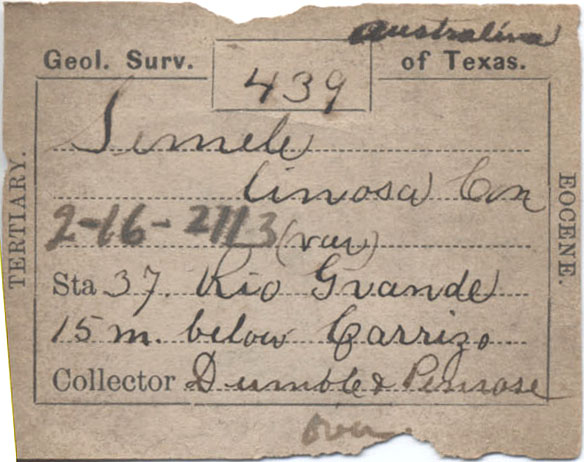 australina
Geol. Surv. 439 of Texas.
Semele
linosa Con
2-16-2113 (var)
Sta 37. Rio Grande
15 m. below Carrizo
Collector Dumble & Penrose
TERTIARY.
EOCENE.
over